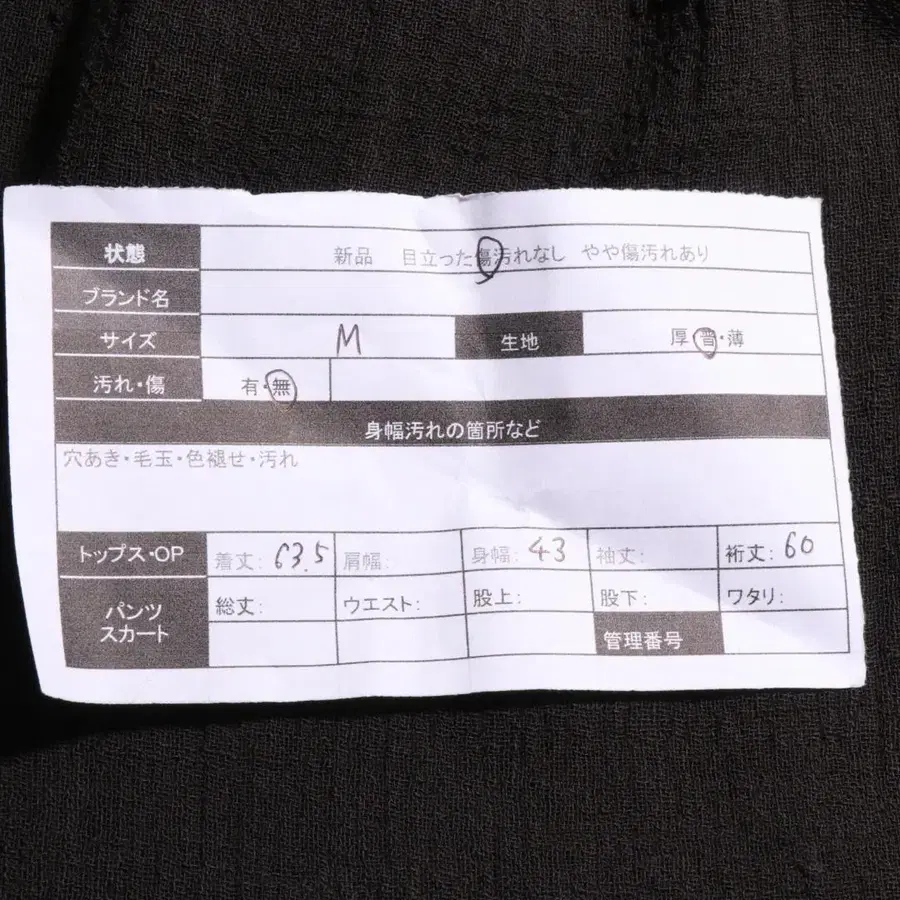 状態 新品 目立った傷汚れなし やや傷汚れあり
ブランド名
サイズ M 生地 厚・普・薄
汚れ・傷 有・無
身幅汚れの箇所など
穴あき・毛玉・色褪せ・汚れ
トップス・OP 着丈: 63.5 肩幅: 身幅: 43 袖丈: 裄丈: 60
パンツ
スカート
総丈: ウエスト: 股上: 股下: ワタリ:
管理番号